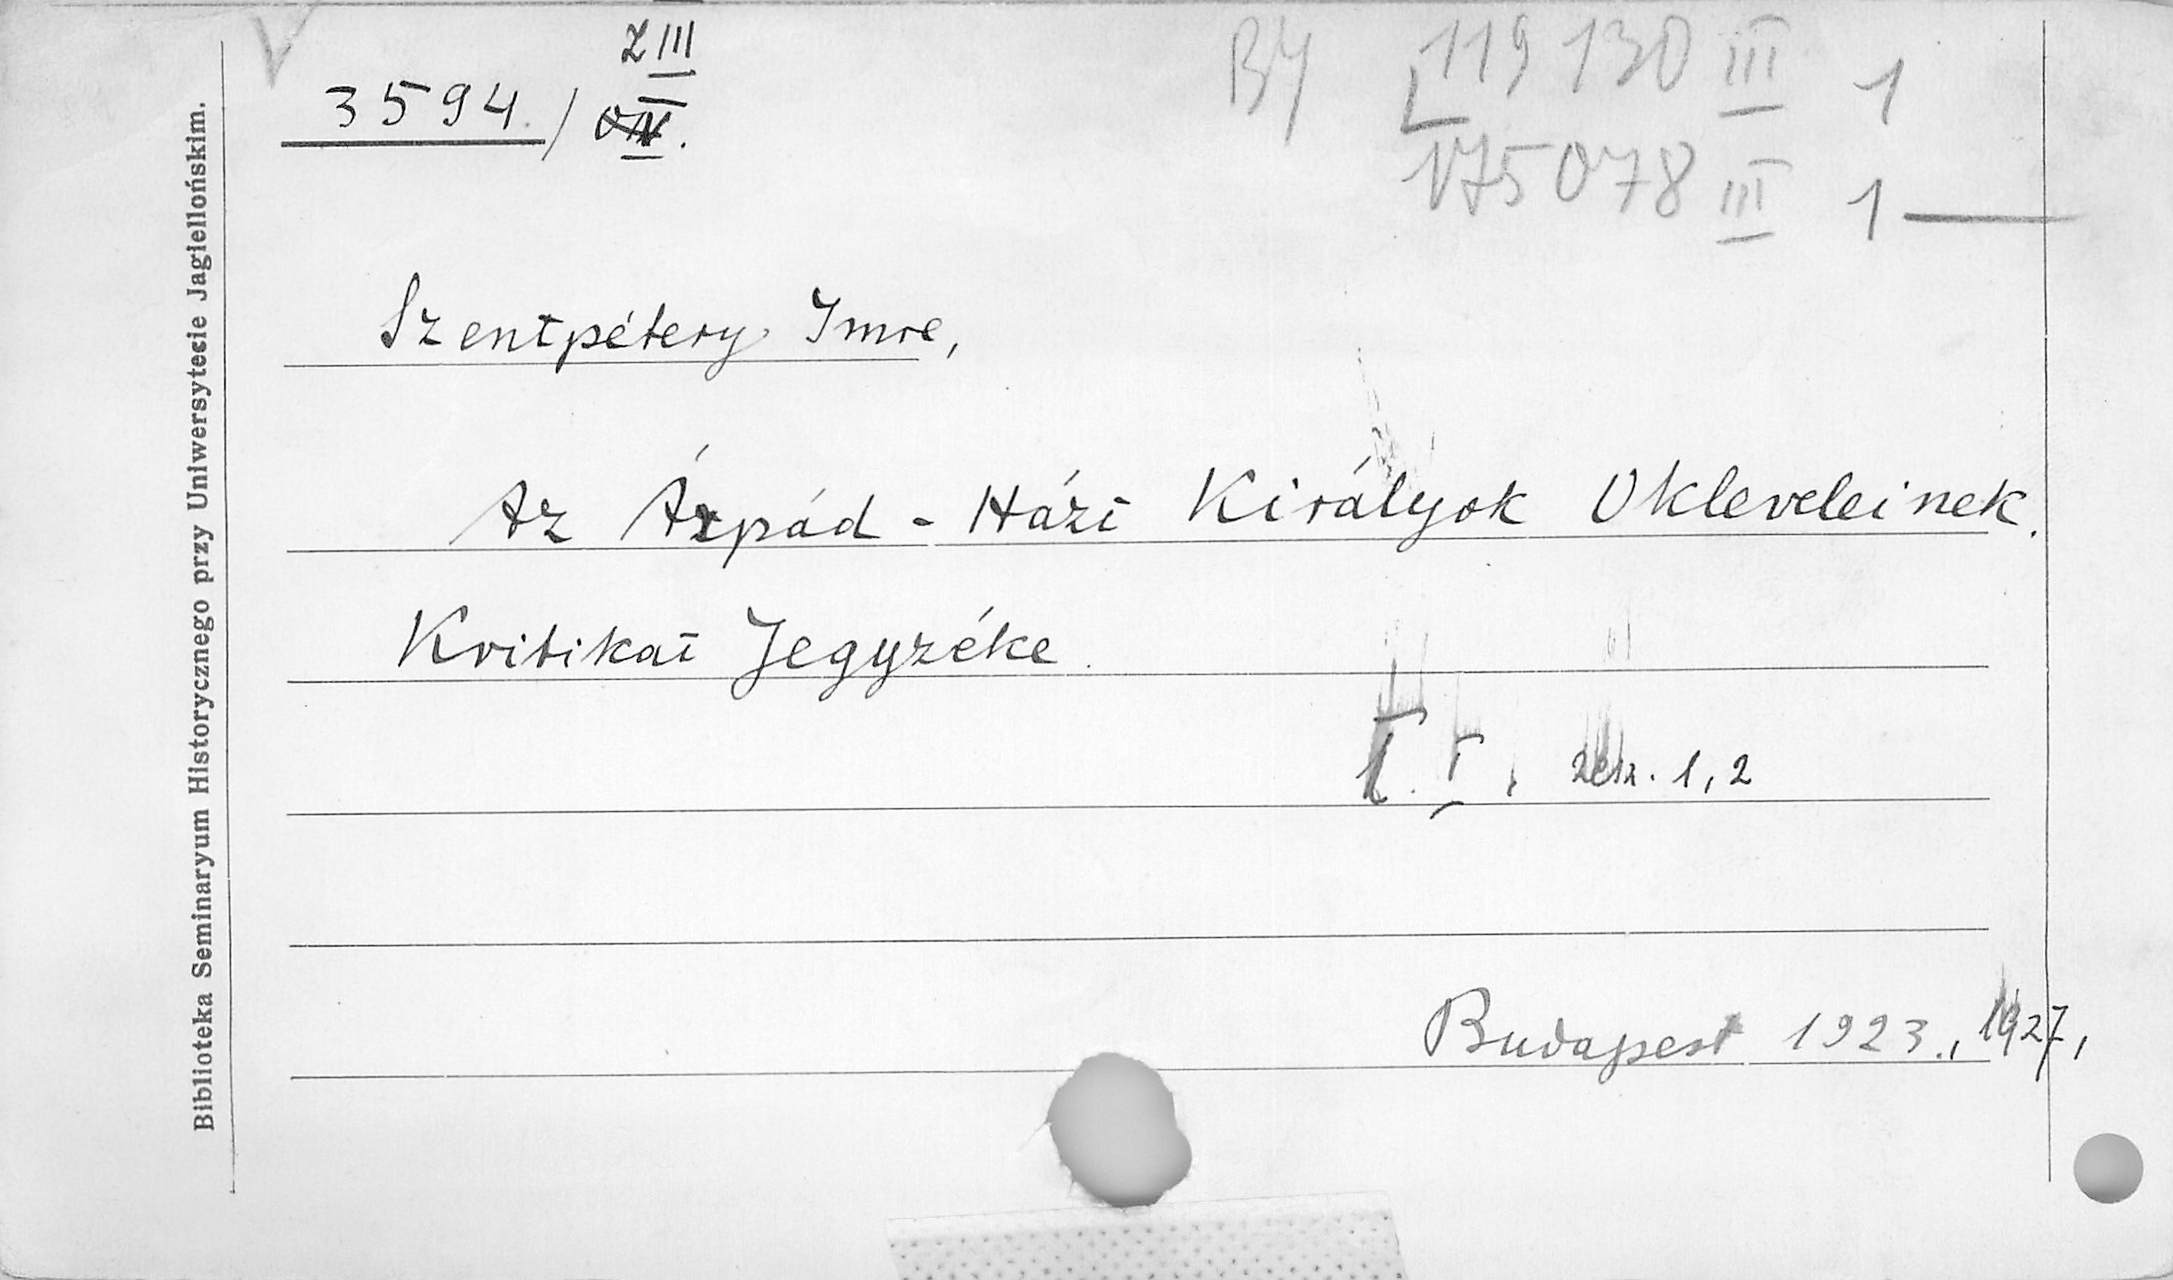 Z III
3594. /
BJ 119130 III 1
175078 III 1
Szentpétery Imre,
Az Árpád-Házi Királyok Okleveleinek
Kritikai Jegyzéke.
T. I, zesz. 1, 2
Budapest 1923., 1927,
Biblioteka Seminaryum Historycznego przy Uniwersytecie Jagiellońskim.